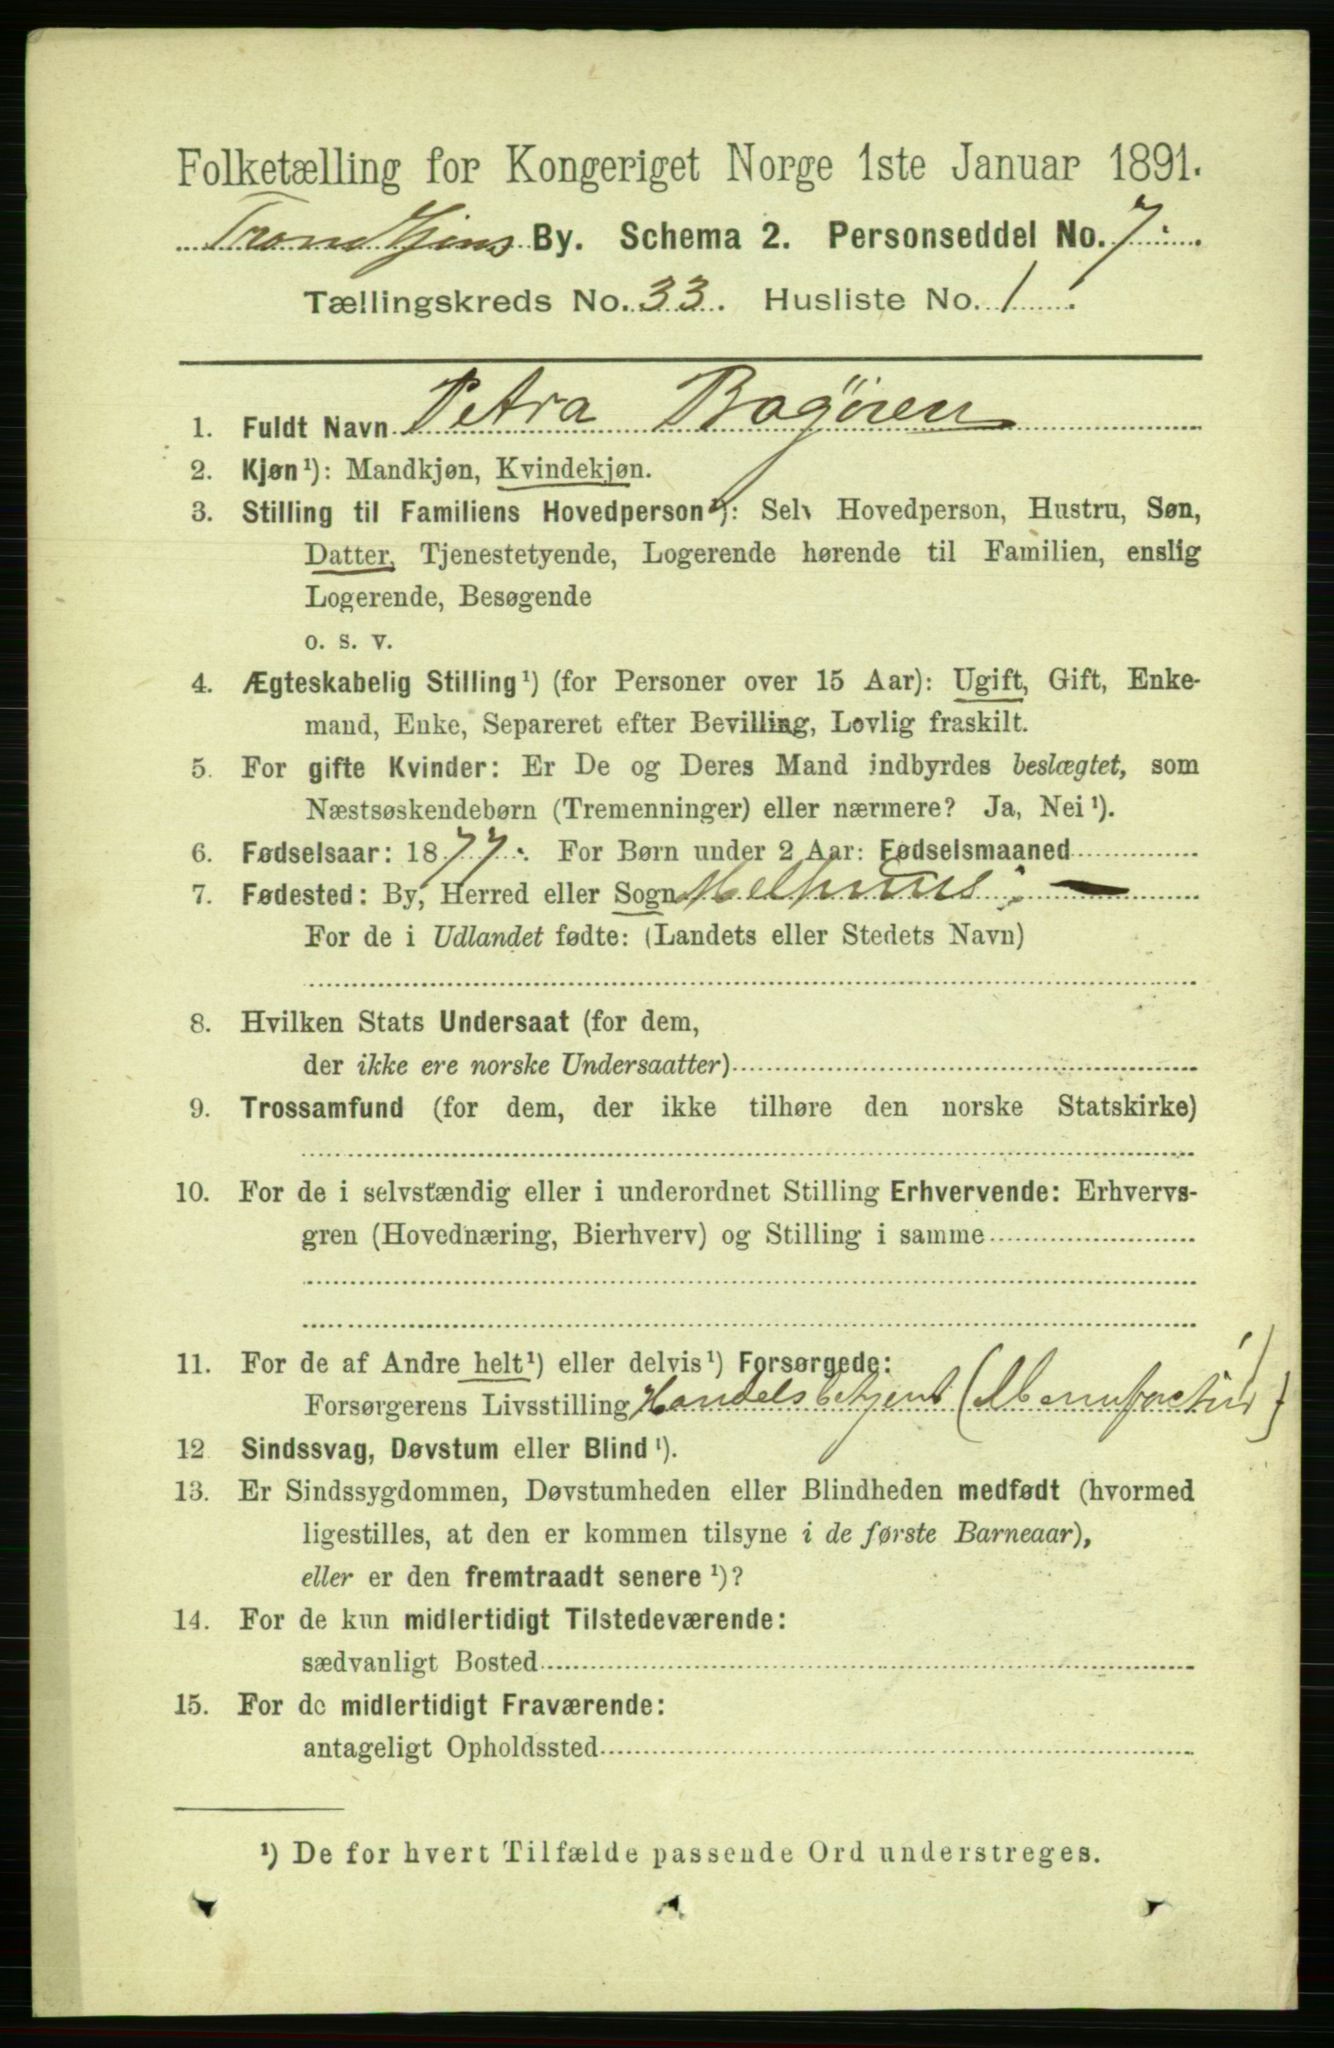 Folketælling for Kongeriget Norge 1ste Januar 1891.
Trondhjems By. Schema 2. Personseddel No. 7.
Tællingskreds No. 33. Husliste No. 1.
1. Fuldt Navn Petra Bogøren
2. Kjøn¹): Mandkjøn, Kvindekjøn.
3. Stilling til Familiens Hovedperson¹): Selv Hovedperson, Hustru, Søn,
Datter, Tjenestetyende, Logerende hørende til Familien, enslig
Logerende, Besøgende
o. s. v.
4. Ægteskabelig Stilling¹) (for Personer over 15 Aar): Ugift, Gift, Enke-
mand, Enke, Separeret efter Bevilling, Lovlig fraskilt.
5. For gifte Kvinder: Er De og Deres Mand indbyrdes beslægtet, som
Næstsøskendebørn (Tremenninger) eller nærmere? Ja, Nei¹).
6. Fødselsaar: 1877. For Børn under 2 Aar: Fødselsmaaned
7. Fødested: By, Herred eller Sogn Melhuus; —
For de i Udlandet fødte: (Landets eller Stedets Navn)
8. Hvilken Stats Undersaat (for dem,
der ikke ere norske Undersaatter)
9. Trossamfund (for dem, der ikke tilhøre den norske Statskirke)
10. For de i selvstændig eller i underordnet Stilling Erhvervende: Erhvervs-
gren (Hovednæring, Bierhverv) og Stilling i samme
11. For de af Andre helt¹) eller delvis¹) Forsørgede:
Forsørgerens Livsstilling Handelsbetjent (Manufactur)
12 Sindssvag, Døvstum eller Blind¹).
13. Er Sindssygdommen, Døvstumheden eller Blindheden medfødt (hvormed
ligestilles, at den er kommen tilsyne i de første Barneaar),
eller er den fremtraadt senere¹)?
14. For de kun midlertidigt Tilstedeværende:
sædvanligt Bosted
15. For de midlertidigt Fraværende:
antageligt Opholdssted
¹) De for hvert Tilfælde passende Ord understreges.